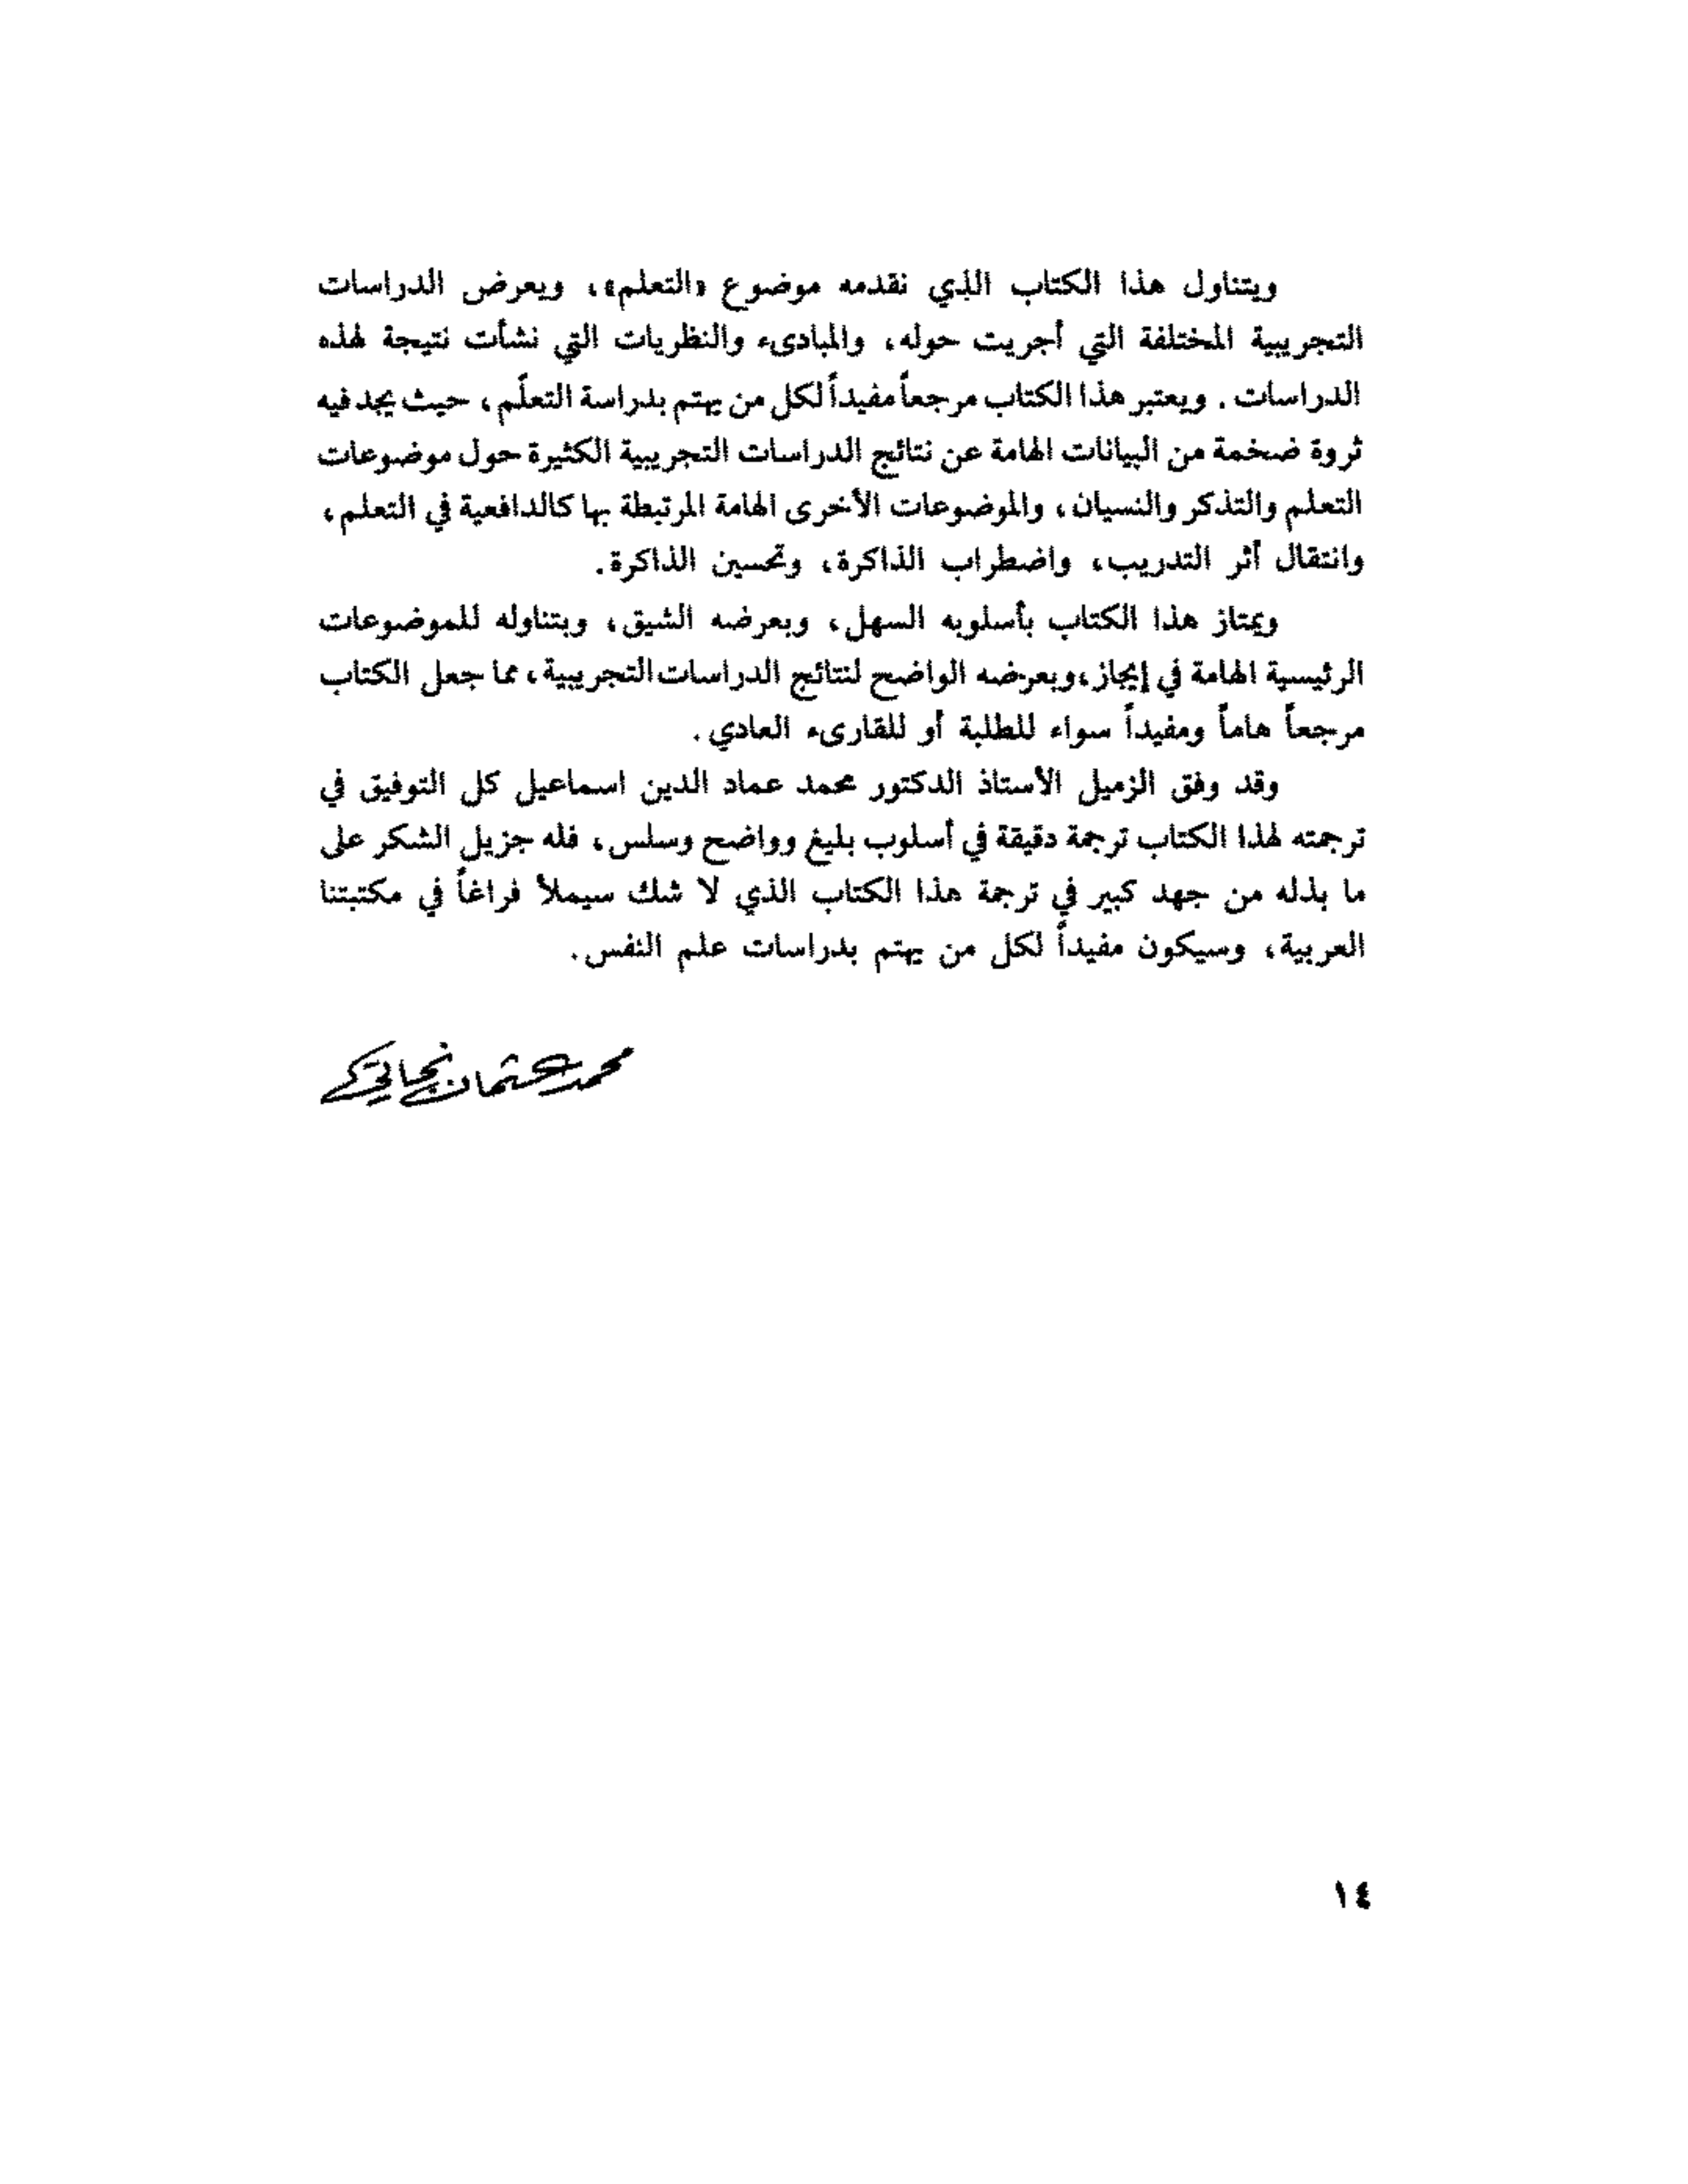 ويتناول هذا الكتاب الذي نقدمه موضوع «التعلم»، ويعرض الدراسات
التجريبية المختلفة التي أجريت حوله، والمبادىء والنظريات التي نشأت نتيجة لهذه
الدراسات. ويعتبر هذا الكتاب مرجعاً مفيداً لكل من يهتم بدراسة التعلّم، حيث يجد فيه
ثروة ضخمة من البيانات الهامة عن نتائج الدراسات التجريبية الكثيرة حول موضوعات
التعلم والتذكر والنسيان، والموضوعات الأخرى الهامة المرتبطة بها كالدافعية في التعلم،
وانتقال أثر التدريب، واضطراب الذاكرة، وتحسين الذاكرة.
ويمتاز هذا الكتاب بأسلوبه السهل، وبعرضه الشيق، وبتناوله للموضوعات
الرئيسية الهامة في إيجاز، وبعرضه الواضح لنتائج الدراسات التجريبية، مما جعل الكتاب
مرجعاً هاماً ومفيداً سواء للطلبة أو للقارىء العادي.
وقد وفق الزميل الأستاذ الدكتور محمد عماد الدين اسماعيل كل التوفيق في
ترجمته لهذا الكتاب ترجمة دقيقة في أسلوب بليغ وواضح وسلس، فله جزيل الشكر على
ما بذله من جهد كبير في ترجمة هذا الكتاب الذي لا شك سيملأ فراغاً في مكتبتنا
العربية، وسيكون مفيداً لكل من يهتم بدراسات علم النفس.
محمد عثمان نجاتي
١٤